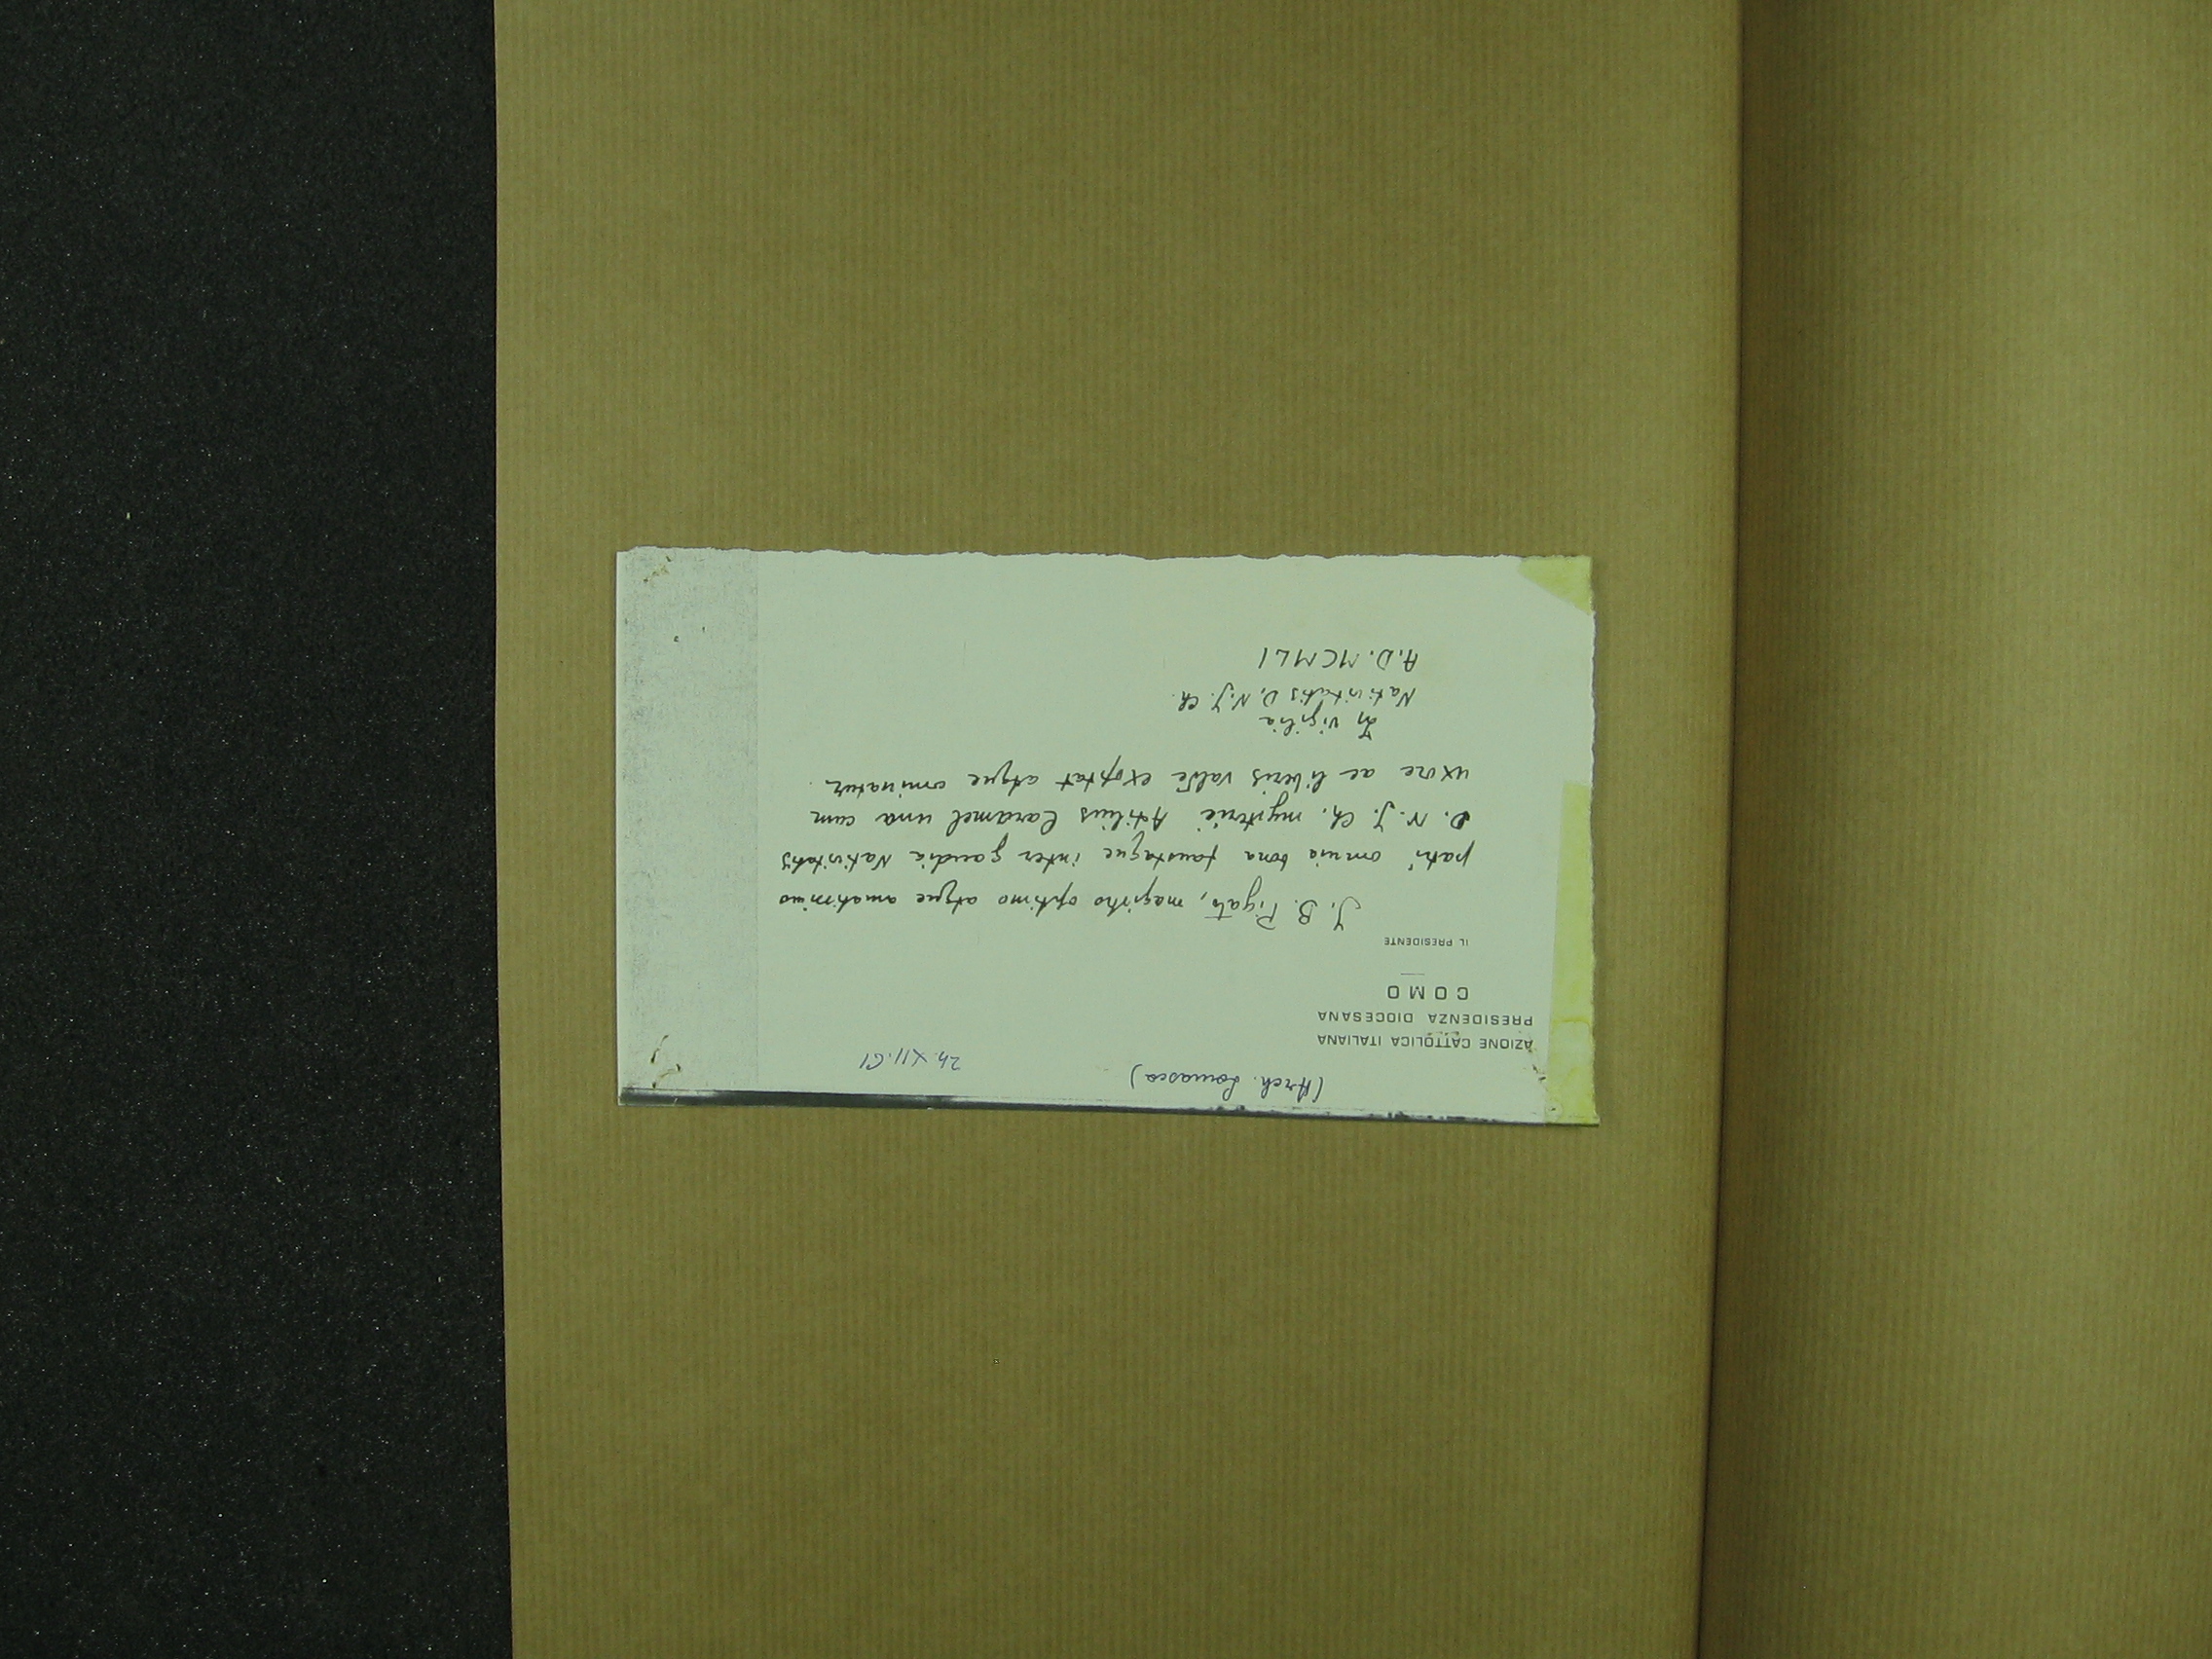 (Arch. Somasca)
24.XII.61
AZIONE CATTOLICA ITALIANA
PRESIDENZA DIOCESANA
COMO
IL PRESIDENTE
J. B. Pigato, magistro optimo atque amatissimo
patri omnia bona faustaque inter gaudia Nativitatis
D. N. J. Ch. mysterii Attilius Caramel una cum
uxore ac liberis valde exoptat atque ominatur.
In vigilia
Nativitatis D. N. J. Ch.
A.D. MCMLI